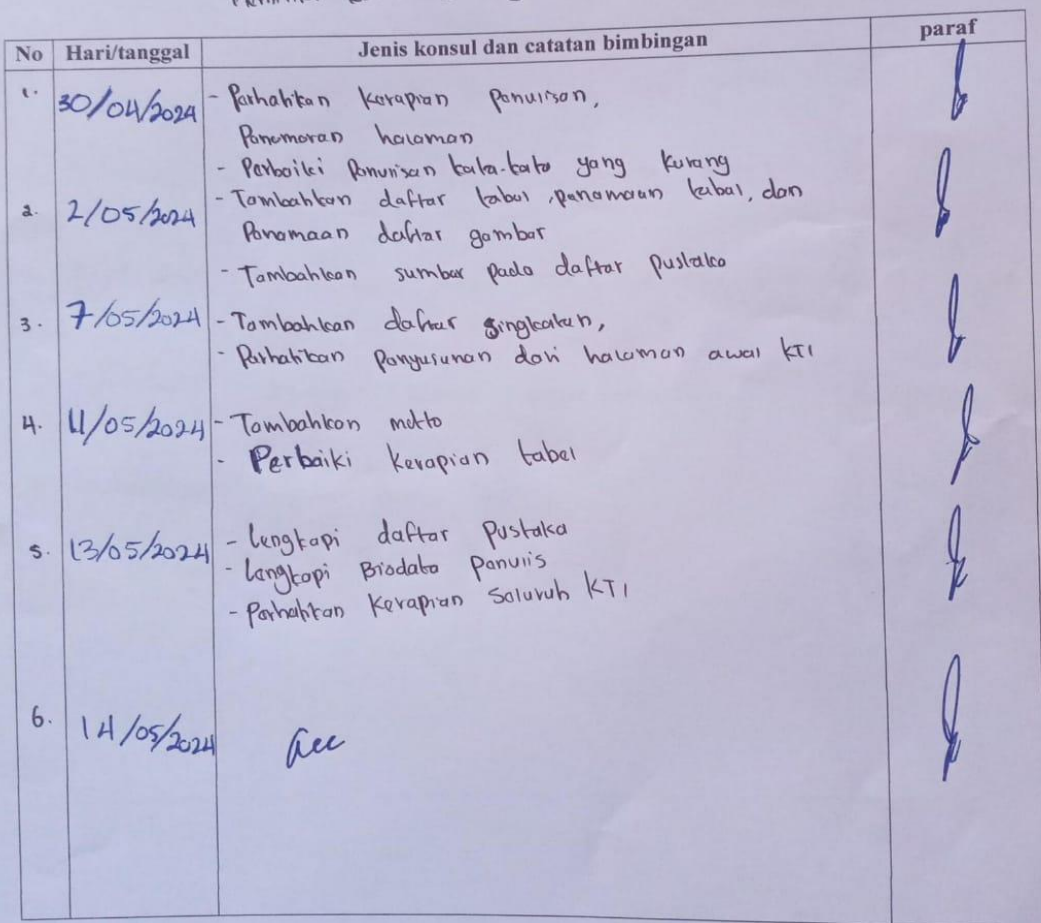 No Hari/tanggal Jenis konsul dan catatan bimbingan paraf
1. 30/04/2024 - Perhatikan kerapian penulisan,
Penomoran halaman
- Perbaiki Penulisan kata-kata yang kurang
2. 2/05/2024 - Tambahkan daftar tabel, penamaan tabel, dan
Penamaan daftar gambar
- Tambahkan sumber pada daftar pustaka
3. 7/05/2024 - Tambahkan daftar singkatan,
- Perhatikan Penyusunan dari halaman awal KTI
4. 11/05/2024 - Tambahkan motto
- Perbaiki kerapian tabel
5. 13/05/2024 - Lengkapi daftar Pustaka
- Lengkapi Biodata Penulis
- Perhatikan Kerapian Seluruh KTI
6. 14/05/2024 acc